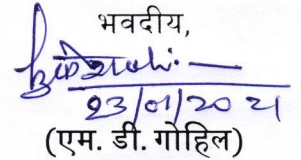 भवदीय,
23/01/2021
(एम. डी. गोहिल)